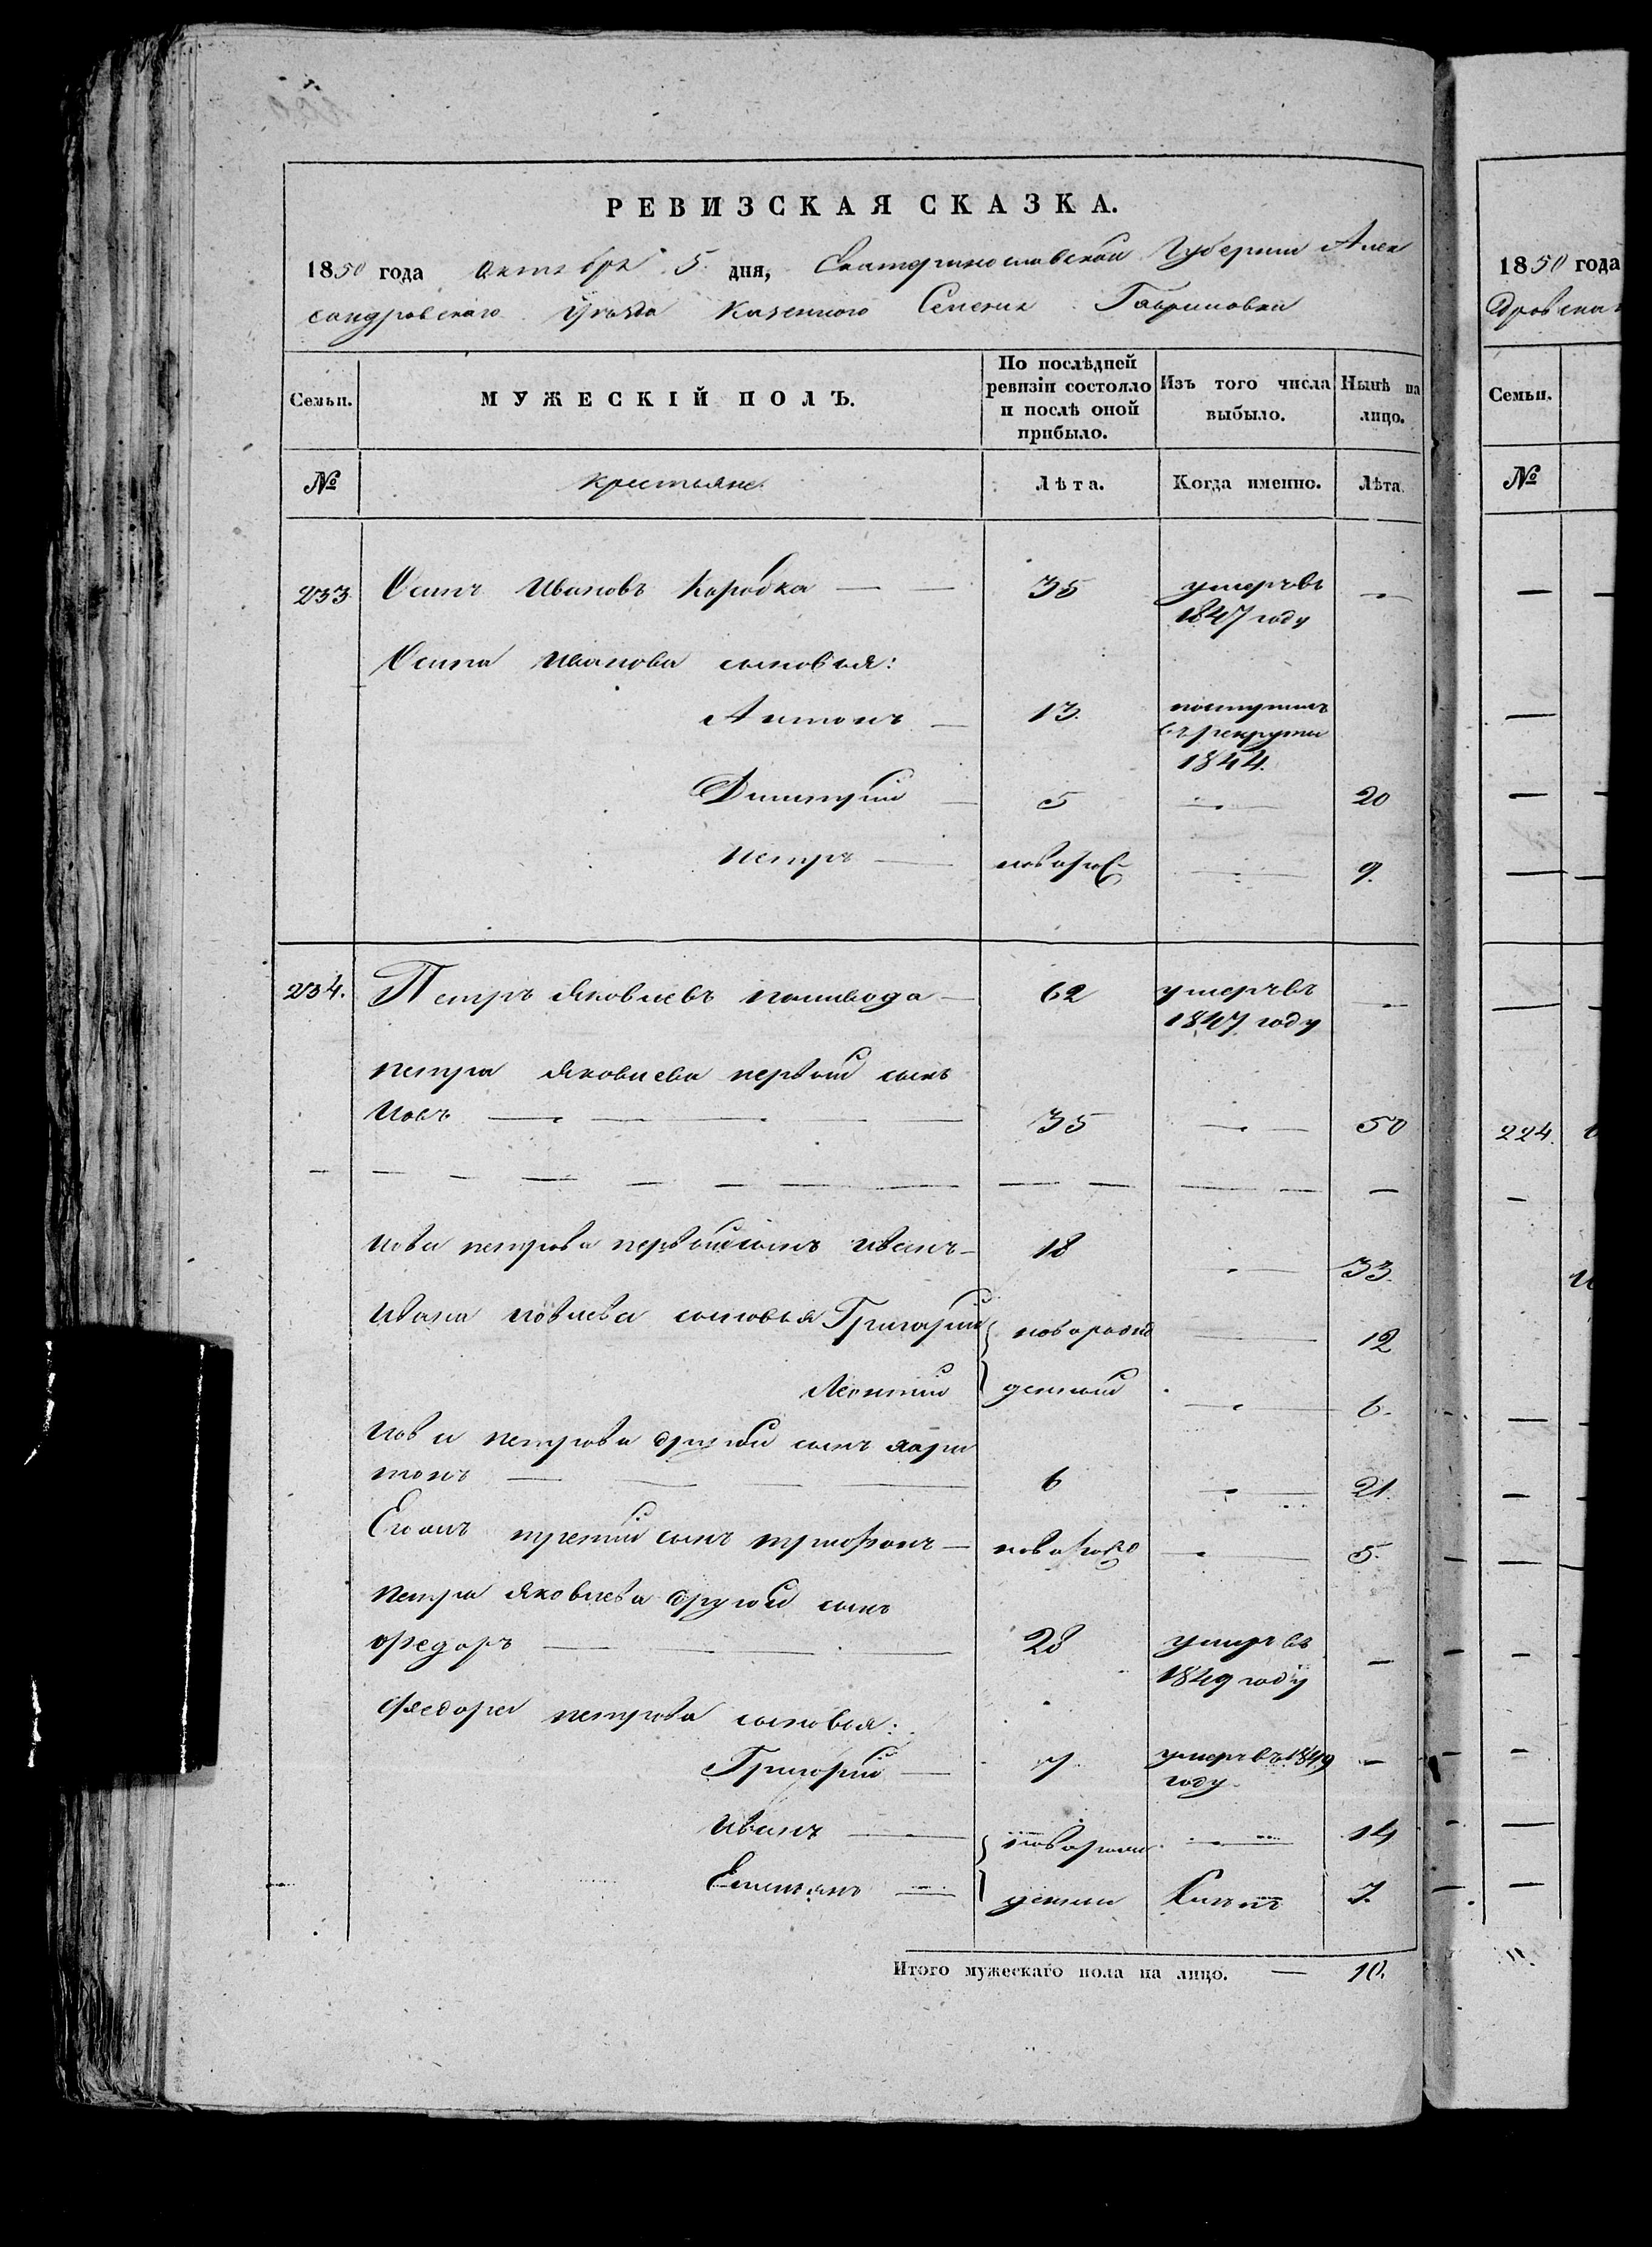 РЕВИЗСКАЯ СКАЗКА.
1850 года октября 5 дня, Екатеринославской Губернии Алек
сандровскаго Уезда Казенного Селения Гавриловки
Семьи. МУЖЕСКІЙ ПОЛЪ. По послѣдней ревизіи состояло и послѣ оной прибыло. Изъ того числа выбыло. Нынѣ на лицо.
№ крестьяне. Лѣта. Когда именно. Лѣта.
233 Осипъ Ивановъ Коробка — — 35 умеръ въ —
1847 году
Осипа Иванова сыновья:
Антонъ — 13. поступилъ
въ рекруты
1844.
Димитрій — 5 — 20
Петръ — новорож — 9.
234. Петръ Яковлевъ поливода — 62 умеръ въ —
1847 году
петра Яковлева первый сынъ
Иовъ — — — 35 — 50
Иова петрова первый сынъ иванъ — 18 — 33.
Ивана иовлева сыновья Григорий новорож — 12
Леонтий денный — 6.
Иова петрова другой сынъ хари
тонъ — 6 — 21.
Его онъ третий сынъ трифонъ — новорож — 5.
Петра Яковлева другой сынъ
фед​оръ — 28 умеръ въ —
1849 году
Федора петрова сыновья:
Григорий — 7 умеръ въ 1849 —
году
Иванъ — новорож — 14
Емельянъ — денныи 7.
Итого мужескаго пола на лицо. — 10.
1850 года
Семьи.
№
224.